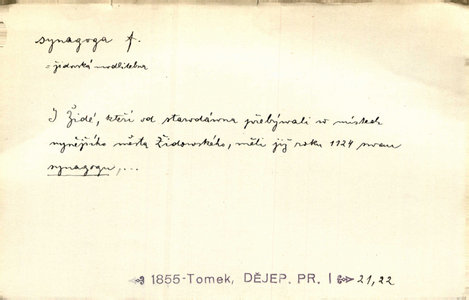 synagoga f.
= židovská modlitebna
I Židé, kteří od starodávna přebývali v místech
nynějšího města Židovského, měli již roku 1124 svou
synagogu,...
1855-Tomek, DĚJEP. PR. I 21,22